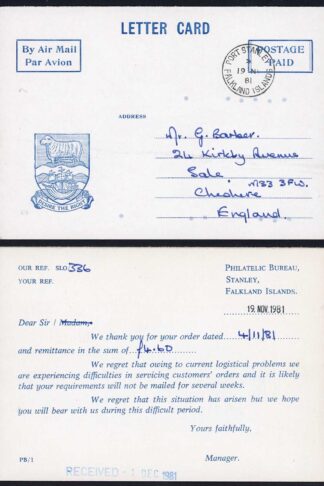 LETTER CARD
By Air Mail
Par Avion
POSTAGE
PAID
PORT STANLEY
19 NO
81
FALKLAND ISLANDS
ADDRESS
Mr. G. Barber.
24 Kirkby Avenue
Sale.
M33 3PW.
Cheshire
England.
DESIRE THE RIGHT
OUR REF. SLO 336
YOUR REF.
PHILATELIC BUREAU,
STANLEY,
FALKLAND ISLANDS.
19 NOV 1981
Dear Sir / Madam,
We thank you for your order dated 4/11/81
and remittance in the sum of £4.60
We regret that owing to current logistical problems we
are experiencing difficulties in servicing customers' orders and it is likely
that your requirements will not be mailed for several weeks.
We regret that this situation has arisen but we hope
you will bear with us during this difficult period.
Yours faithfully,
Manager.
PB/1
RECEIVED - 1 DEC 1981